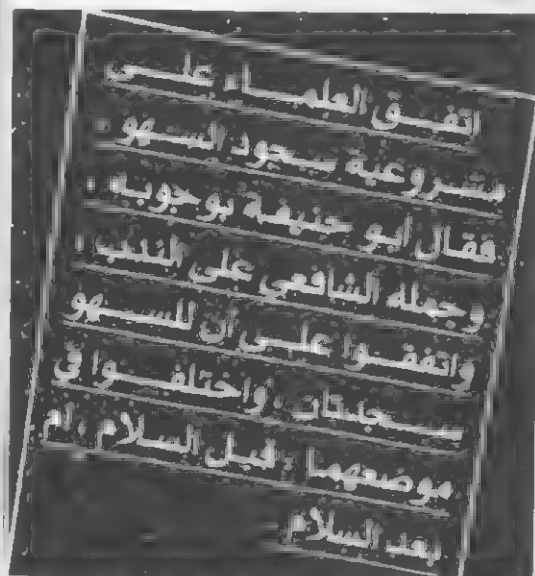 اتفق العلماء على
مشروعية سجود السهو .
فقال ابو حنيفة بوجوبه .
وجمله الشافعي على الندب .
واتفقوا على أن للسهو
سجدتان . واختلفوا في
موضعهما : قبل السلام ، ام
بعد السلام